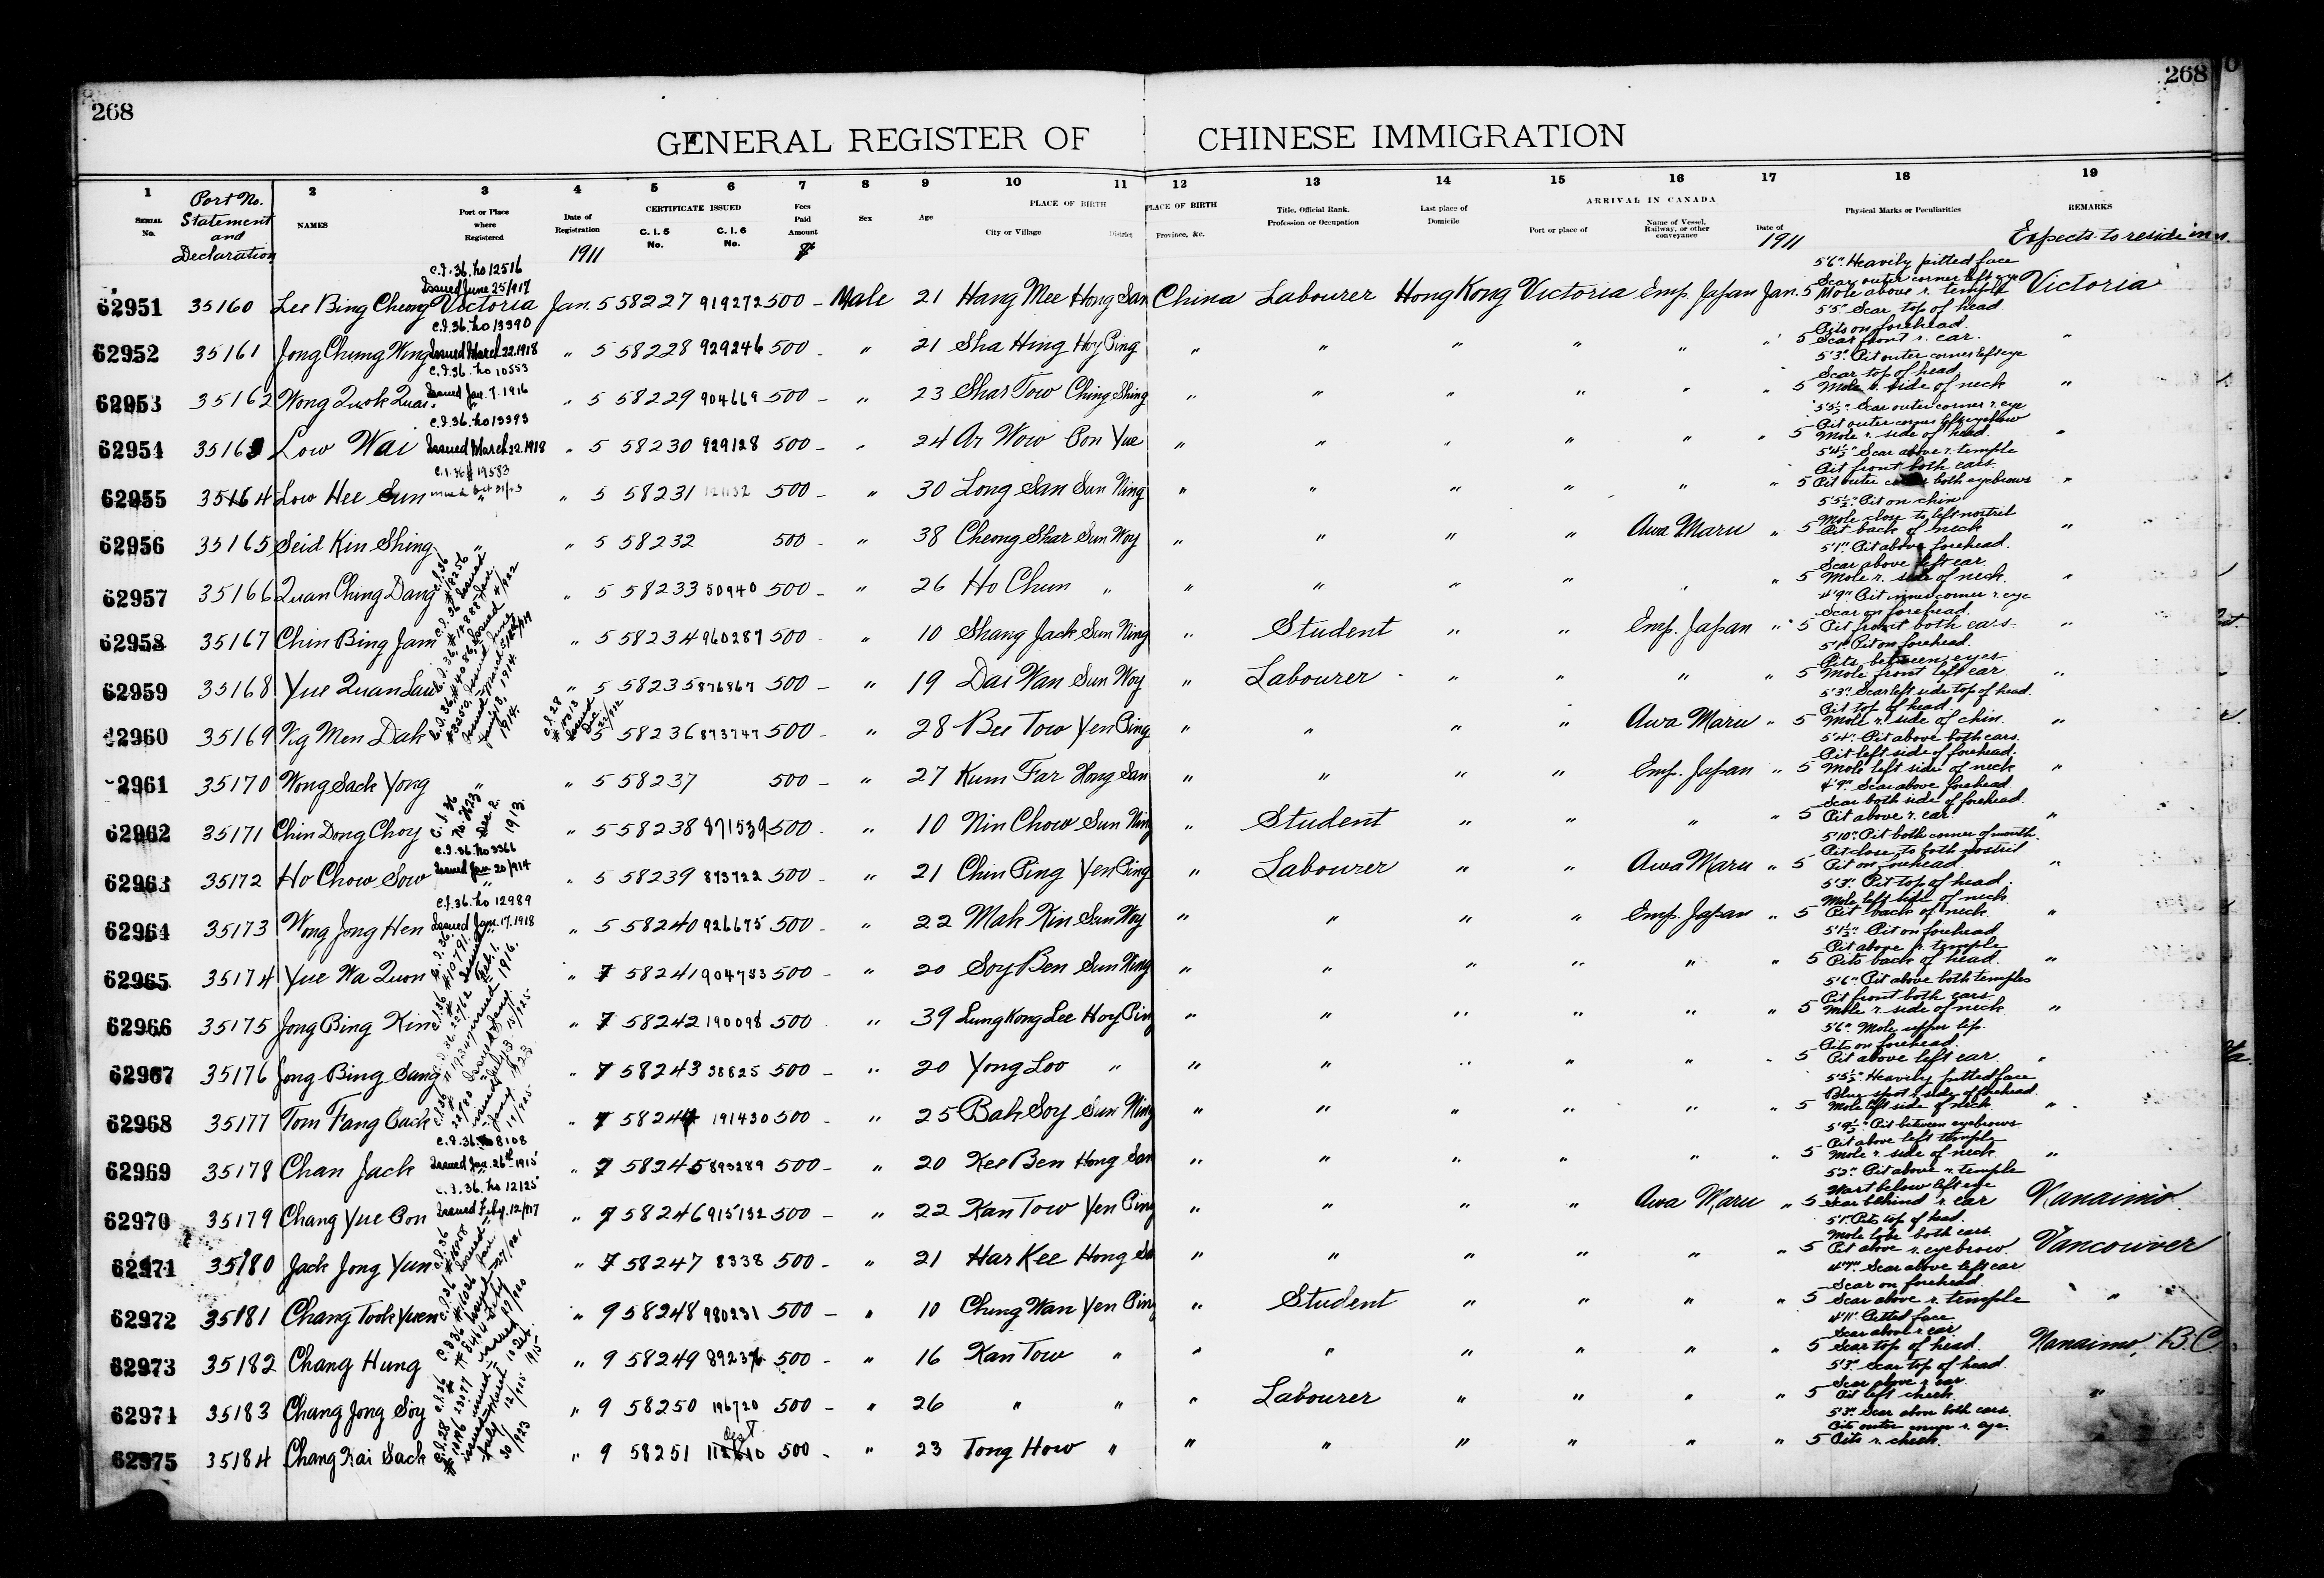 268
268
GENERAL REGISTER OF CHINESE IMMIGRATION
1 2 3 4 5 6 7 8 9 10 11 12 13 14 15 16 17 18 19
SERIAL No. Port No. Statement and Declaration NAMES Port or Place where Registered Date of Registration CERTIFICATE ISSUED C. I. 5 No. C. I. 6 No. Fees Paid Amount Sex Age PLACE OF BIRTH City or Village District PLACE OF BIRTH Province, &c. Title, Official Rank, Profession or Occupation Last place of Domicile ARRIVAL IN CANADA Port or place of Name of Vessel, Railway, or other conveyance Date of Physical Marks or Peculiarities REMARKS
1911 $ 1911 Expects to reside in
C.I.36. No 12516 Issued June 25/917
5'6" Heavily pitted face Scar outer corner left eye
62951 35160 Lee Bing Cheong Victoria Jan. 5 58227 919272 500 - Male 21 Hang Mee Hong San China Labourer Hong Kong Victoria Emp. Japan Jan. 5 Mole above r. temple Victoria
C.I.36. No 13390
5'5" Scar top of head Pits on forehead
62952 35161 Jong Chung Wing Issued March 22.1918 " 5 58228 929246 500 - " 21 Sha Hing Hoy Ping " " " " " " 5 Scar front r. ear. "
C.I.36. No 10553
5'3" Pit outer corner left eye Scar top of head
62953 35162 Wong Quok Quai Issued Jan. 7. 1916 " 5 58229 904669 500 - " 23 Shar Tow Ching Shing " " " " " " 5 Mole r. side of neck "
C.I.36. No 13393
5'5½" Scar outer corner r. eye Pit outer corner left eyebrow
62954 35163 Low Wai Issued March 22.1918 " 5 58230 929128 500 - " 24 Ar Wow Pon Yue " " " " " " 5 Mole r. side of head. "
C.I.36 # 19583
5'4½" Scar above r. temple Pit front both ears.
62955 35164 Low Hee Sun " 5 58231 500 - " 30 Long San Sun Ning " " " " " " 5 Pit outer both eyebrows "
5'5½" Pit on chin Mole close to left nostril
62956 35165 Seid Kin Shing " " 5 58232 500 - " 38 Cheong Shar Sun Woy " " " " Awa Maru " 5 Pit back of neck "
5'1" Pit above forehead. Scar above left ear.
62957 35166 Quan Chung Dang " 5 58233 50940 500 - " 26 Ho Chun " " " " " " " 5 Mole r. side of neck. "
4'9" Pit inner corner r. eye Scar on forehead.
62958 35167 Chin Bing Jam " 5 58234 960287 500 - " 10 Shang Jack Sun Ning " Student " " Emp. Japan " 5 Pit front both ears. "
5'1" Pit on forehead. Pits between eyes
62959 35168 Yue Quan Lau " 5 58235 876867 500 - " 19 Dai Wan Sun Woy " Labourer " " " " 5 Mole front left ear "
5'3" Scar left side top of head. Pit top of head
62960 35169 Ng Men Dak 5 58236 873747 500 - " 28 Bee Tow Yen Ping " " " " Awa Maru " 5 Mole r. side of chin. "
5'4" Pit above both ears. Pit left side of forehead.
62961 35170 Wong Sack Yong " " 5 58237 500 - " 27 Kum Far Hong San " " " " Emp. Japan " 5 Mole left side of neck "
4'9" Scar above forehead Scar both side of forehead.
62962 35171 Chin Dong Choy C.I.36 Dec. 2. 1913. " 5 58238 871539 500 - " 10 Nin Chow Sun Ning " Student " " " " 5 Pit above r. ear. "
C.I.36. No 3366
5'10" Pit both corner of mouth. Pit close to both nostril
62963 35172 Ho Chow Sow Issued Jan. 20/914 " 5 58239 873722 500 - " 21 Chin Ping Yen Ping " Labourer " " Awa Maru " 5 Pit on forehead. "
C.I.36. No 12989
5'3" Pit top of head. Mole left side of neck
62964 35173 Wong Jong Hen Issued Jan. 17. 1918 " 5 58240 926675 500 - " 22 Mak Kin Sun Woy " " " " Emp. Japan " 5 Pit back of neck "
5'1½" Pit on forehead Pit above r. temple
62965 35174 Yue Wa Quon " 7 58241 904783 500 - " 20 Soy Ben Sun Ning " " " " " " 5 Pits back of head. "
5'6" Pit above both temples Pit front both ears.
62966 35175 Jong Bing Kin " 7 58242 190098 500 " 39 Lung Kong Lee Hoy Ping " " " " " " 5 Mole r. side of neck "
5'6" Mole upper lip. Pits on forehead
62967 35176 Jong Bing Sang " 7 58243 38825 500 - " 20 Yong Loo " " " " " " " 5 Pit above left ear "
5'5½" Heavily pitted face Blue spot r. side of forehead.
62968 35177 Tom Fang Back " 7 58244 191430 500 - " 25 Bak Soy Sun Ning " " " " " " 5 Mole left side of neck. "
C.I.36. No 8108
5'9½" Pit between eyebrows Pit above left temple
62969 35178 Chan Jack Issued Jan. 26th 1915 " 7 58245 893289 500 - " 20 Kee Ben Hong San " " " " " " 5 Mole r. side of neck "
C.I.36. No 12125
5'2" Pit above r. temple Wart below left eye
62970 35179 Chang Yue Pon Issued Feby. 12/917 " 7 58246 915132 500 - " 22 Kan Tow Yen Ping " " " " Awa Maru " 5 Scar behind r. ear Nanaimo
5'1" Pits top of head. Mole lobe both ears.
62971 35180 Jack Jong Yun " 7 58247 8338 500 - " 21 Har Kee Hong San " " " " " " 5 Pit above r. eyebrow. Vancouver
4'7" Scar above left ear Scar on forehead
62972 35181 Chang Took Yuen " 9 58248 980231 500 - " 10 Chung Wan Yen Ping " Student " " " " 5 Scar above r. temple "
4'11" Pitted face Scar above r. ear.
62973 35182 Chang Hung " 9 58249 500 - " 16 Kan Tow " " " " " " " 5 Scar top of head. Nanaimo, B.C.
5'3" Scar top of head. Scar above r. ear.
62974 35183 Chang Jong Soy " 9 58250 196720 500 - " 26 " " " Labourer " " " " 5 Pit left cheek. "
5'3" Scar above both ears. Pits outer corner r. eye.
62975 35184 Chang Kai Sack " 9 58251 500 - " 23 Tong How " " " " " " " 5 Pits r. cheek.